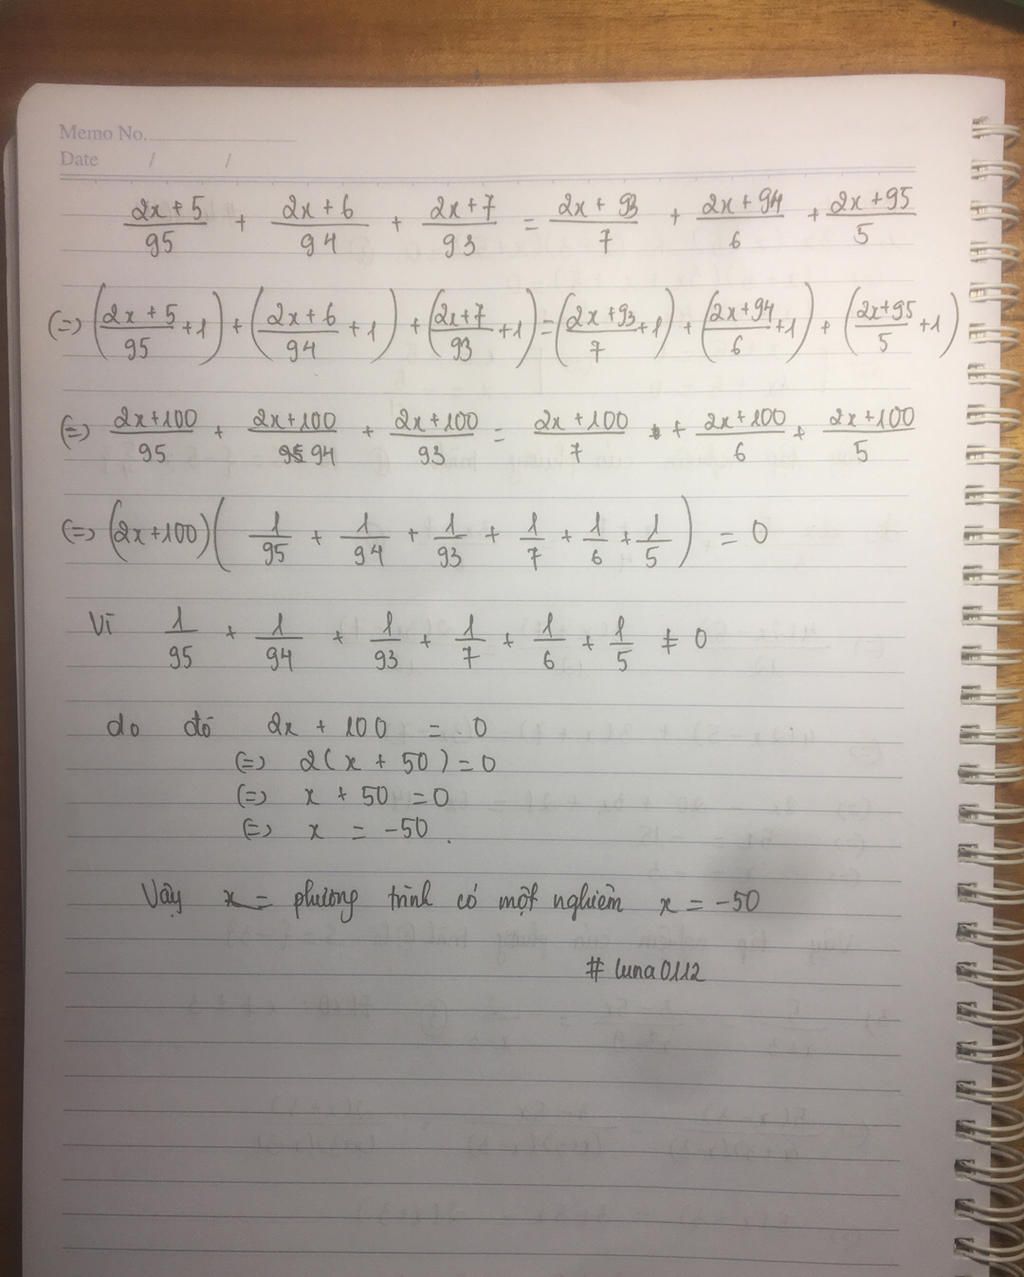 Memo No.
Date / /
2x+5/95 + 2x+6/94 + 2x+7/93 = 2x+93/7 + 2x+94/6 + 2x+95/5
(=) (2x+5/95 +1) + (2x+6/94 +1) + (2x+7/93 +1) = (2x+93/7 +1) + (2x+94/6 +1) + (2x+95/5 +1)
(=) 2x+100/95 + 2x+100/94 + 2x+100/93 = 2x+100/7 + 2x+100/6 + 2x+100/5
(=) (2x+100)(1/95 + 1/94 + 1/93 + 1/7 + 1/6 + 1/5) = 0
Vì 1/95 + 1/94 + 1/93 + 1/7 + 1/6 + 1/5 ≠ 0
do đó 2x + 100 = 0
(=) 2(x + 50) = 0
(=) x + 50 = 0
(=) x = -50.
Vậy x = phương trình có một nghiệm x = -50
# luna0112